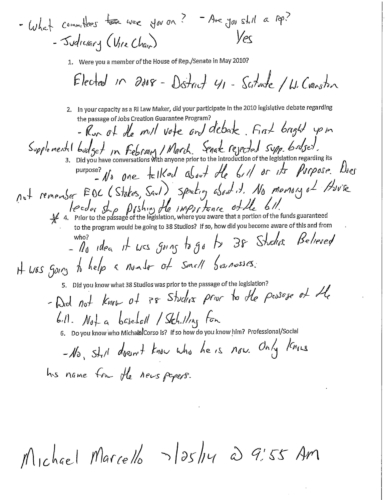 - What committees were you on? - Are you still a rep?
- Judiciary (Vice Chair) Yes
1. Were you a member of the House of Rep./Senate in May 2010?
Elected in 2008 - District 41 - Scituate / W. Cranston
2. In your capacity as a RI Law Maker, did your participate in the 2010 legislative debate regarding
the passage of Jobs Creation Guarantee Program?
- Run of the mill vote and debate. First brought up in
Supplemental budget in February / March. Senate rejected supp. budget.
3. Did you have conversations with anyone prior to the introduction of the legislation regarding its
purpose?
- No one talked about the bill or its purpose. Does
not remember EDC (Stokes, Saul) speaking about it. No memory of House
leadership pushing the importance of the bill.
* 4. Prior to the passage of the legislation, where you aware that a portion of the funds guaranteed
to the program would be going to 38 Studios? If so, how did you become aware of this and from
who?
- No idea it was going to go to 38 Studios. Believed
it was going to help a number of small businesses.
5. Did you know what 38 Studios was prior to the passage of the legislation?
- Did not know of 38 Studios prior to the passage of the
bill. Not a baseball / Schilling fan
6. Do you know who Michael Corso is? If so how do you know him? Professional/Social
- No, still doesn't know who he is now. Only knows
his name from the newspapers.
Michael Marcello 7/25/14 @ 9:55 AM